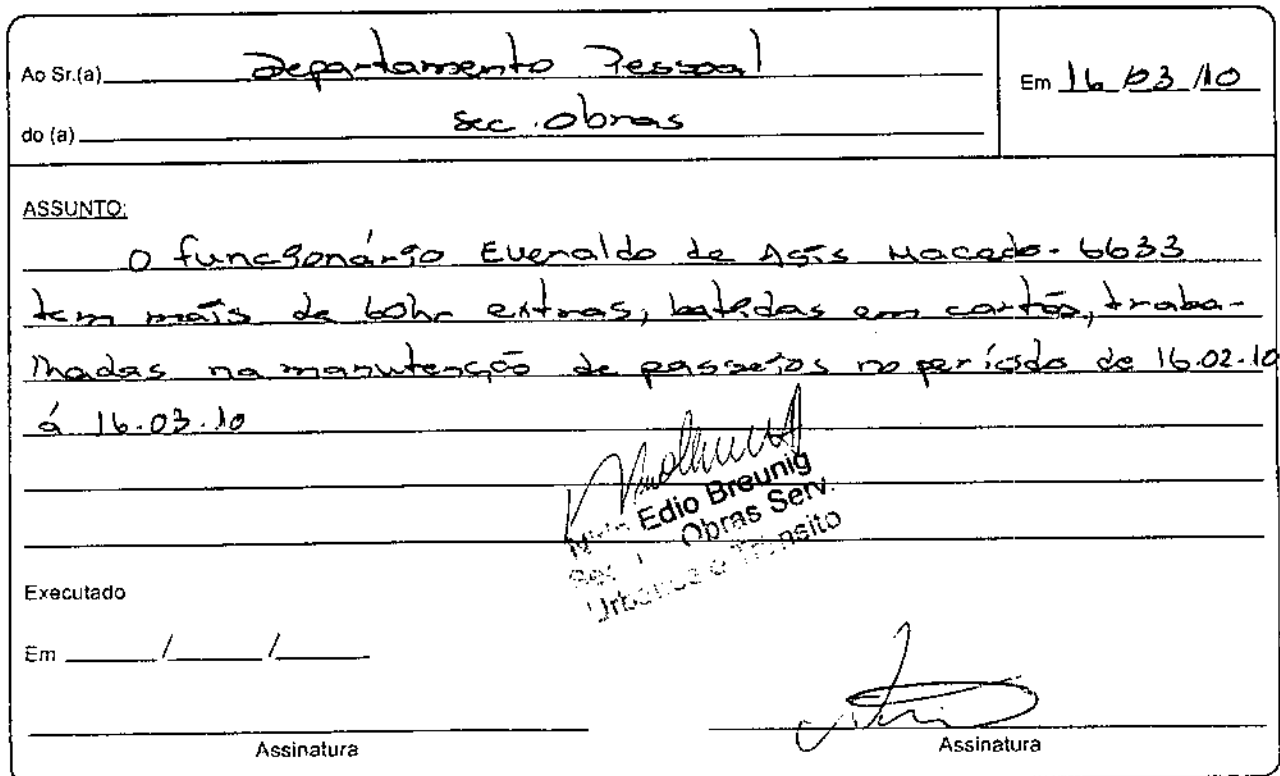 Ao Sr.(a) Departamento Pessoal
Em 16/03/10
do (a) Sec. Obras
ASSUNTO:
O funcionário Everaldo de Assis Macedo - 6633
tem mais de 60hr extras, batidas em cartão, traba-
lhadas na manutenção de passeios no período de 16.02.10
á 16.03.10
Edio Breunig
Obras Serv.
Urbanos e Trânsito
Executado
Em ____/____/____
Assinatura
Assinatura